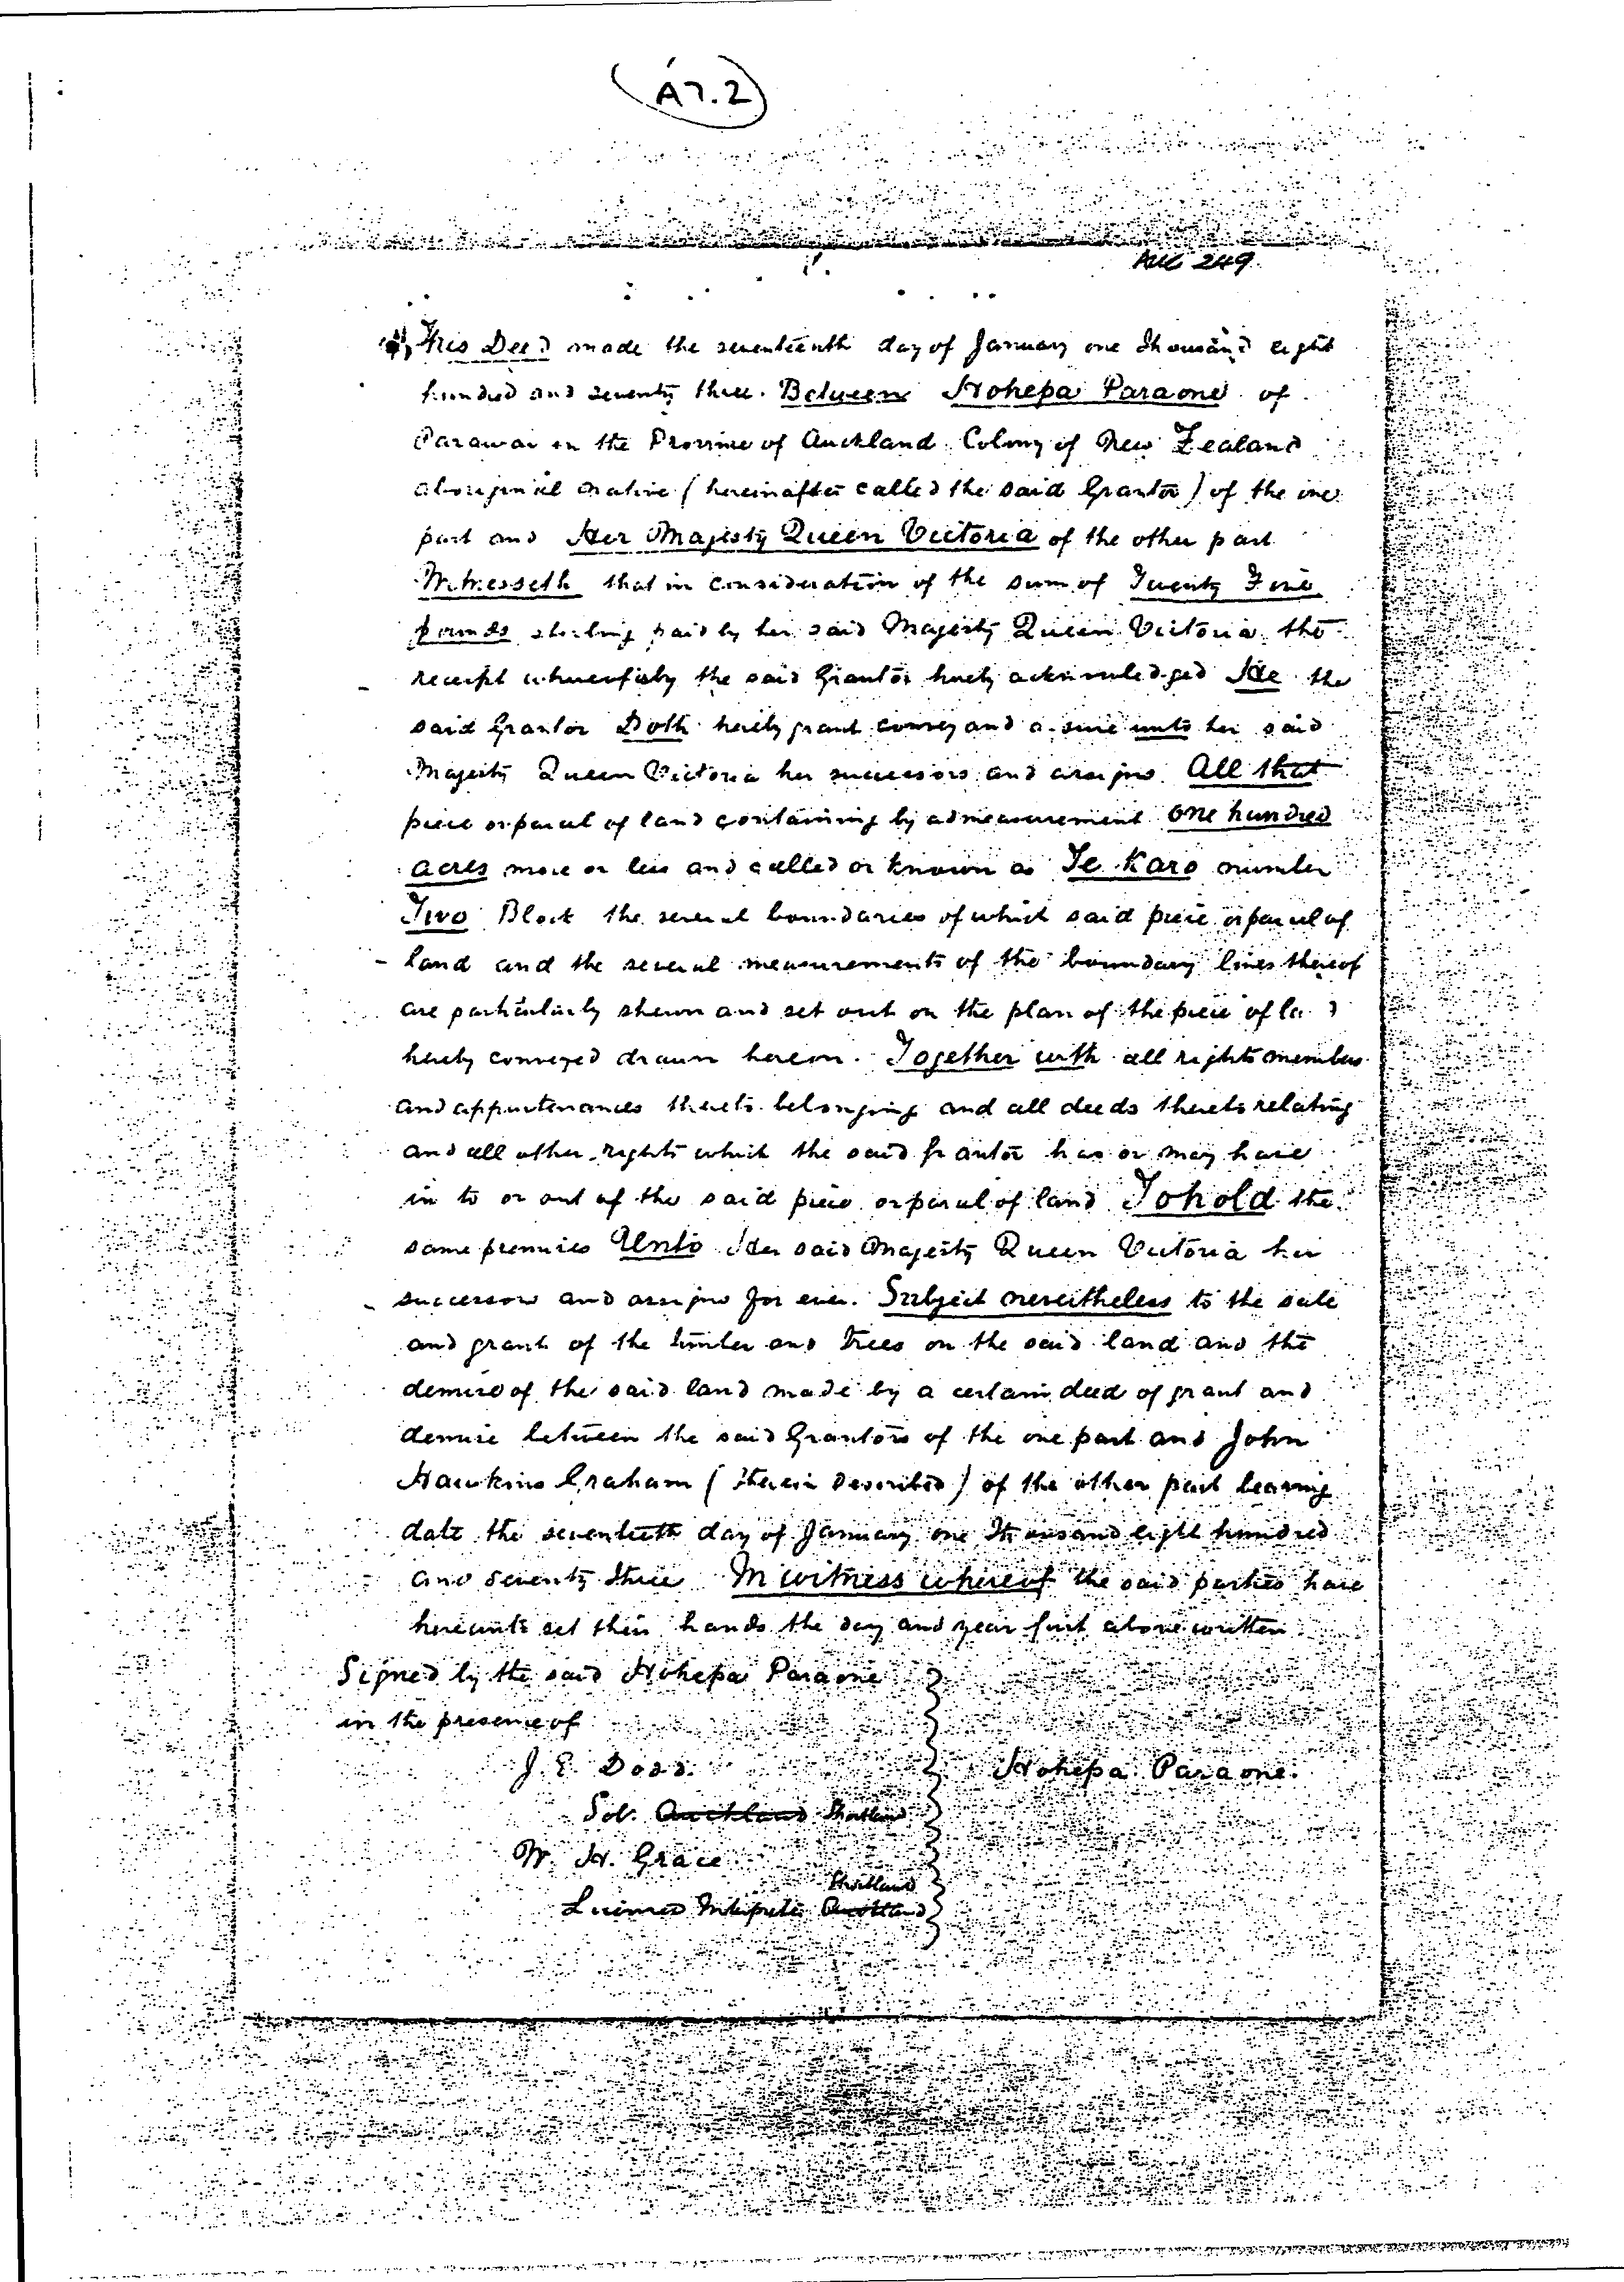 A7.2
AUC 249
This Deed made the seventeenth day of January one thousand eight
hundred and seventy three. Between Hohepa Paraone of
Parawai in the Province of Auckland Colony of New Zealand
aboriginal native (hereinafter called the said Grantor) of the one
part and Her Majesty Queen Victoria of the other part
Witnesseth that in consideration of the sum of Twenty Five
pounds sterling paid by her said Majesty Queen Victoria the
receipt whereof is by the said Grantor hereby acknowledged He the
said Grantor Doth hereby grant convey and assure unto her said
Majesty Queen Victoria her successors and assigns All that
piece or parcel of land containing by admeasurement One hundred
acres more or less and called or known as Te Karo number
Two Block the several boundaries of which said piece or parcel of
land and the several measurements of the boundary lines thereof
are particularly shewn and set out on the plan of the piece of land
hereby conveyed drawn hereon. Together with all rights members
and appurtenances thereto belonging and all deeds thereto relating
and all other rights which the said Grantor has or may have
in to or out of the said piece or parcel of land To hold the
same premises Unto Her said Majesty Queen Victoria her
successors and assigns for ever. Subject nevertheless to the sale
and grant of the timber and trees on the said land and the
demise of the said land made by a certain deed of grant and
demise between the said Grantors of the one part and John
Hawkins Graham (therein described) of the other part bearing
date the seventeeth day of January one thousand eight hundred
and seventy three In witness whereof the said parties have
hereunto set their hands the day and year first above written
Signed by the said Hohepa Paraone
in the presence of
J. E. Dods.
Hohepa Paraone.
Sol. Auckland Shortland
W. H. Grace
Shortland
Licensed Interpreter Auckland